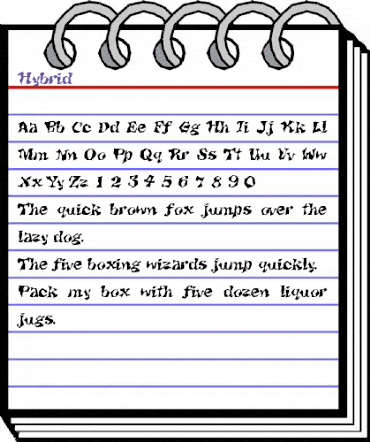 Hybrid
Aa Bb Cc Dd Ee Ff Gg Hh Ii Jj Kk Ll
Mm Nn Oo Pp Qq Rr Ss Tt Uu Vv Ww
Xx Yy Zz 1 2 3 4 5 6 7 8 9 0
The quick brown fox jumps over the
lazy dog.
The five boxing wizards jump quickly.
Pack my box with five dozen liquor
jugs.